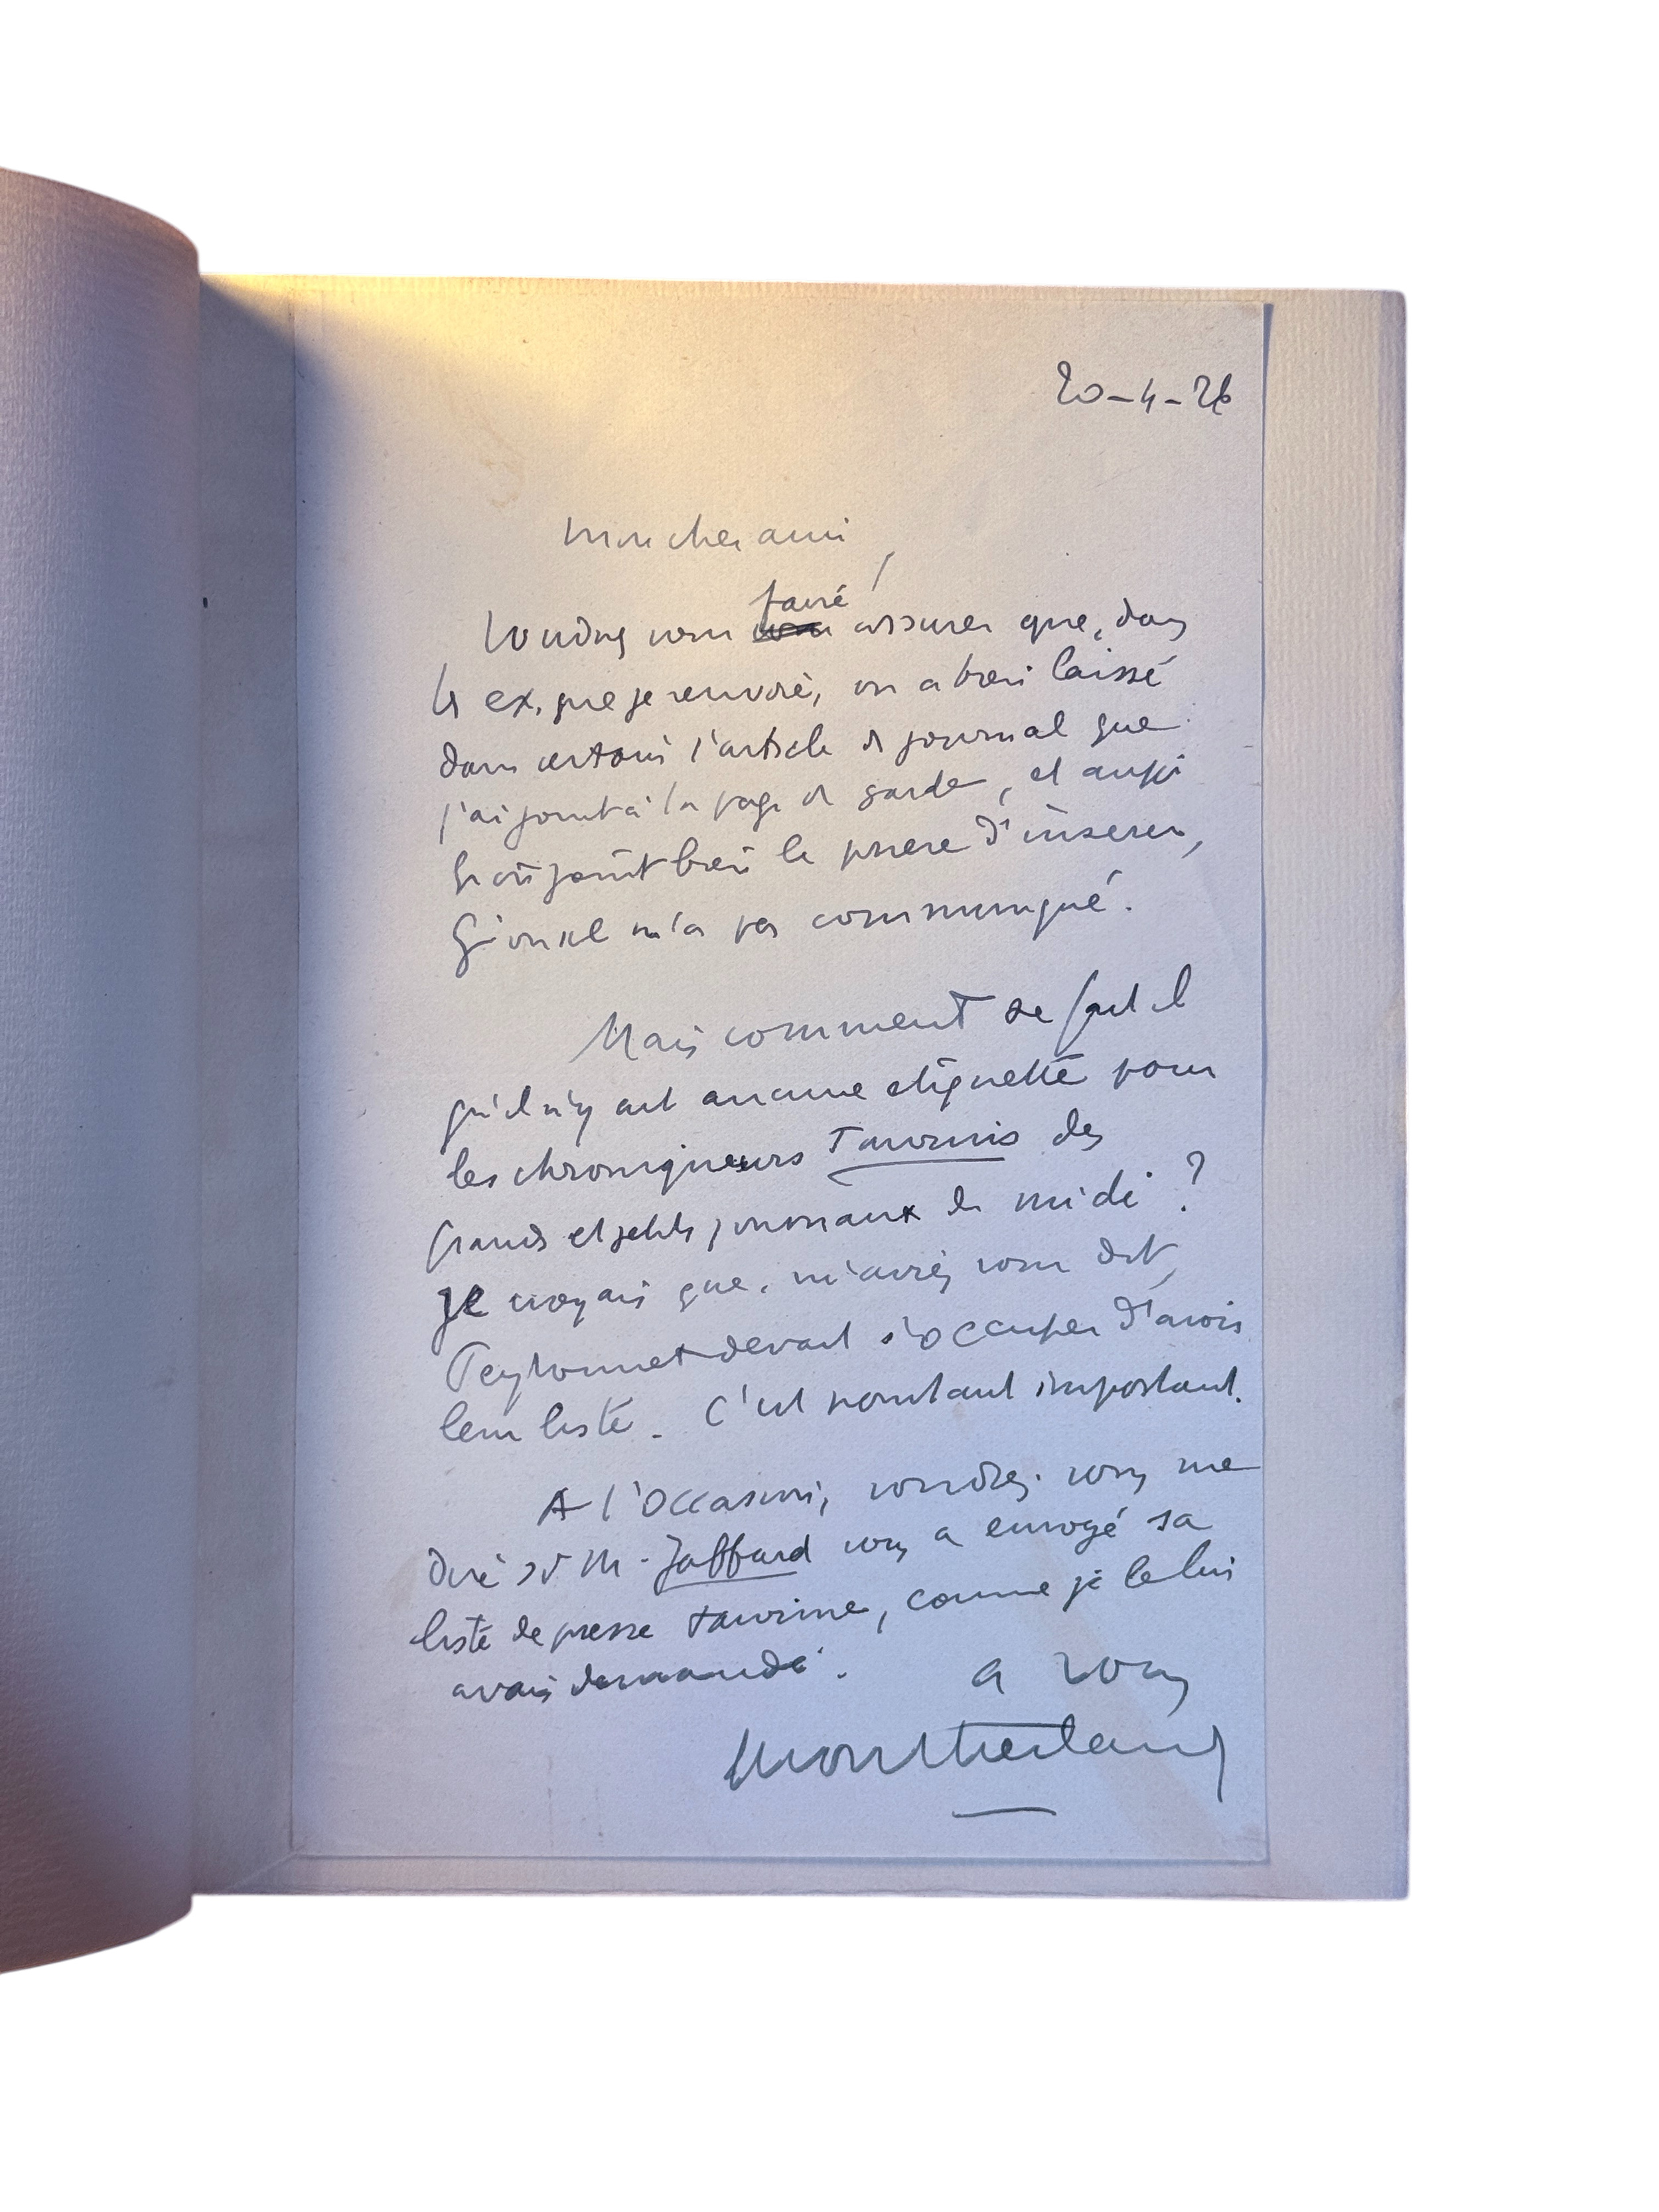 20-4-26
Mon cher ami,
faire
Voudrez vous vous assurer que, dans
les ex. que je renvoie, on a bien laissé
dans certains l'article de journal que
j'ai joint à la page de garde, et aussi
qu'on joint bien le priere d'inserer,
Qu'on ne m'a pas communiqué.
Mais comment se fait il
qu'il n'y ait aucune etiquette pour
les chroniqueurs Taurins des
grands et petits journaux du midi ?
Je croyais que, m'aviez vous dit,
devait s'occuper d'avoir
leur liste. C'est pourtant important.
A l'occasion, voudrez-vous me
dire si M. Jaffard vous a envoyé sa
liste de presse taurine, comme je le lui
avais demandé. a vous
Montherlant